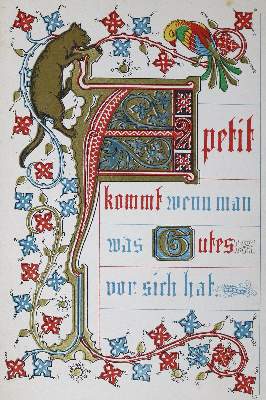 Apetit
kommt wenn man
was Gutes
vor sich hat.